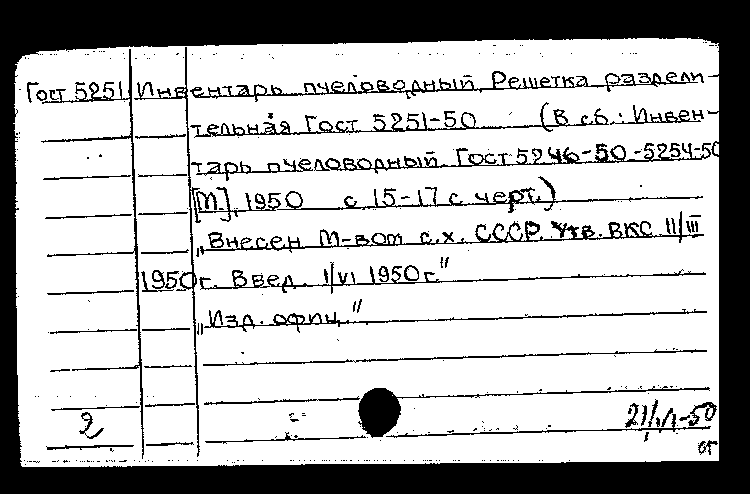 Гост 5251 Инвентарь пчеловодный. Решетка раздели-
тельная Гост 5251-50 (В сб.: Инвен-
тарь пчеловодный. Гост 5246-50-5254-50
[М], 1950 с 15-17 с черт.)
„Внесен М-вом с.х. СССР. Утв. ВКС 11/III
1950г. Введ. 1/VI 1950г."
„Изд. офиц."
2